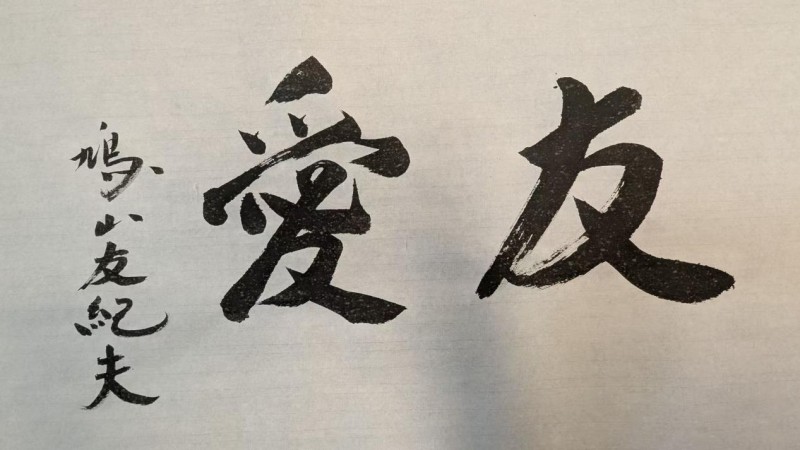 友愛
鳩山友紀夫